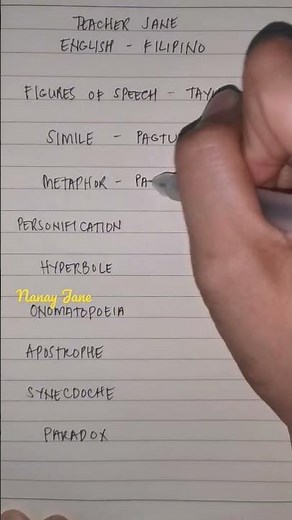 TEACHER JANE
ENGLISH - FILIPINO
FIGURES OF SPEECH -
SIMILE -
METAPHOR -
PERSONIFICATION
HYPERBOLE
Nanay Jane
ONOMATOPOEIA
APOSTROPHE
SYNECDOCHE
PARADOX